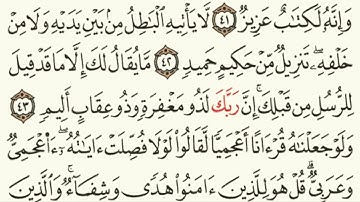 وَإِنَّهُۥ لَكِتَٰبٌ عَزِيزٌ ٤١ لَّا يَأْتِيهِ ٱلْبَٰطِلُ مِنۢ بَيْنِ يَدَيْهِ وَلَا مِنْ
خَلْفِهِۦ ۖ تَنزِيلٌ مِّنْ حَكِيمٍ حَمِيدٍ ٤٢ مَّا يُقَالُ لَكَ إِلَّا مَا قَدْ قِيلَ
لِلرُّسُلِ مِن قَبْلِكَ ۚ إِنَّ رَبَّكَ لَذُو مَغْفِرَةٍ وَذُو عِقَابٍ أَلِيمٍ ٤٣
وَلَوْ جَعَلْنَٰهُ قُرْءَانًا أَعْجَمِيًّا لَّقَالُوا۟ لَوْلَا فُصِّلَتْ ءَايَٰتُهُۥٓ ۖ ءَا۬عْجَمِىٌّ
وَعَرَبِىٌّ ۗ قُلْ هُوَ لِلَّذِينَ ءَامَنُوا۟ هُدًى وَشِفَآءٌ ۖ وَٱلَّذِينَ